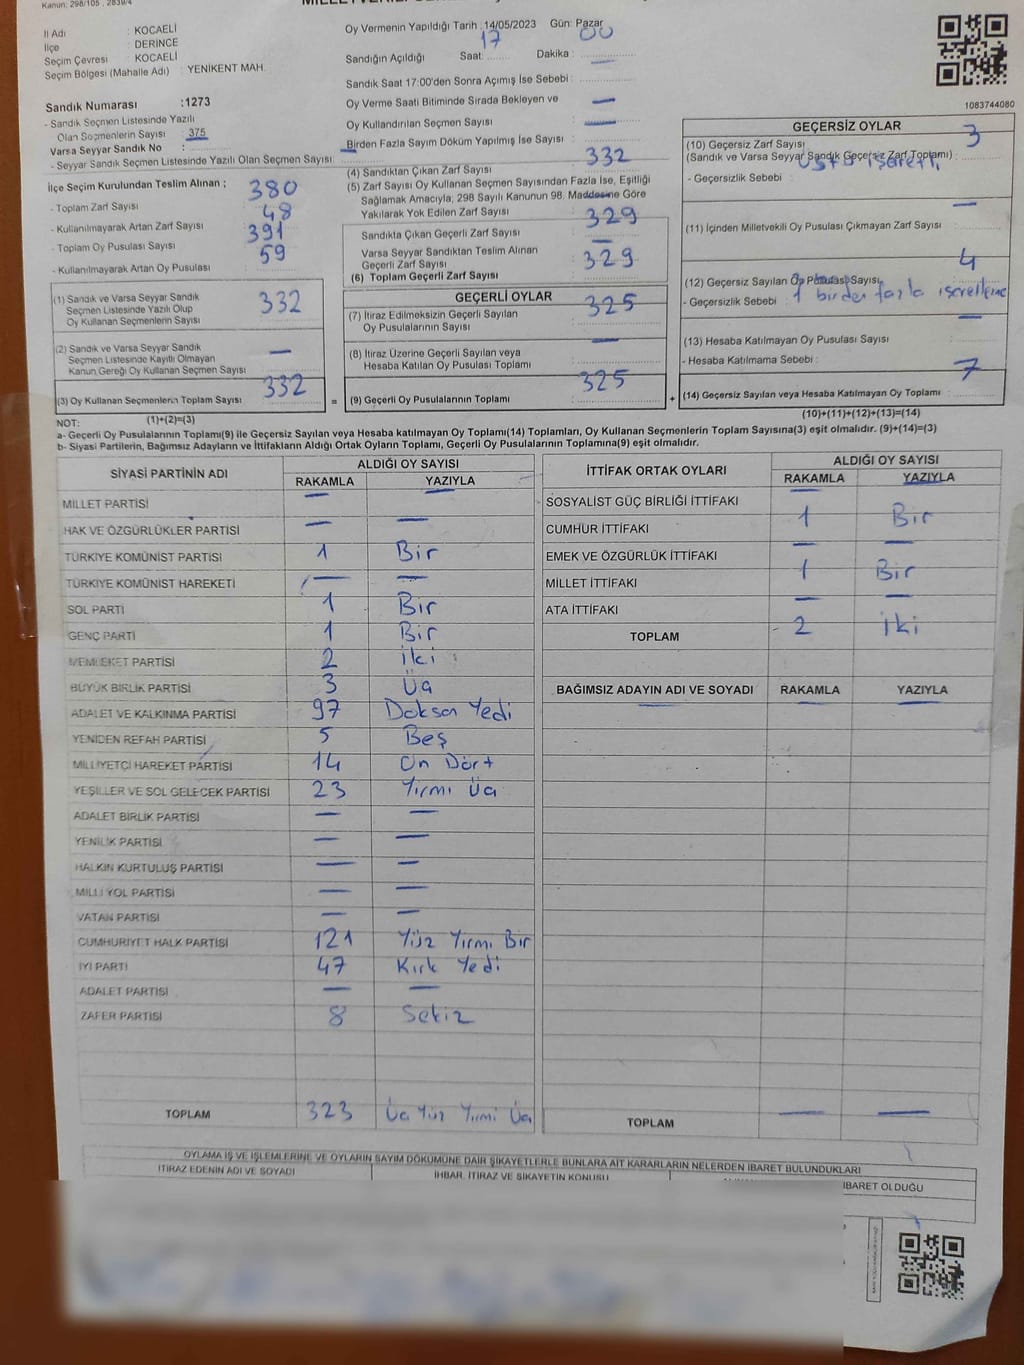 Kanun: 298/105 , 2839/4
İl Adı : KOCAELİ
İlçe : DERİNCE
Seçim Çevresi : KOCAELİ
Seçim Bölgesi (Mahalle Adı) : YENİKENT MAH.
Oy Vermenin Yapıldığı Tarih : 14/05/2023 Gün: Pazar
Sandığın Açıldığı Saat: 17 Dakika : 00
Sandık Saat 17:00'den Sonra Açımış İse Sebebi : —
Oy Verme Saati Bitiminde Sırada Bekleyen ve
Oy Kullandırılan Seçmen Sayısı : —
Birden Fazla Sayım Döküm Yapılmış İse Sayısı : —
1083744080
Sandık Numarası :1273
- Sandık Seçmen Listesinde Yazılı
Olan Seçmenlerin Sayısı : 375
Varsa Seyyar Sandık No :
- Seyyar Sandık Seçmen Listesinde Yazılı Olan Seçmen Sayısı : —
İlçe Seçim Kurulundan Teslim Alınan ;
- Toplam Zarf Sayısı : 380
- Kullanılmayarak Artan Zarf Sayısı : 48
- Toplam Oy Pusulası Sayısı : 391
- Kullanılmayarak Artan Oy Pusulası : 59
(1) Sandık ve Varsa Seyyar Sandık
Seçmen Listesinde Yazılı Olup
Oy Kullanan Seçmenlerin Sayısı : 332
(2) Sandık ve Varsa Seyyar Sandık
Seçmen Listesinde Kayıtlı Olmayan
Kanun Gereği Oy Kullanan Seçmen Sayısı : —
(3) Oy Kullanan Seçmenlerin Toplam Sayısı : 332
(4) Sandıktan Çıkan Zarf Sayısı : 332
(5) Zarf Sayısı Oy Kullanan Seçmen Sayısından Fazla İse, Eşitliği
Sağlamak Amacıyla, 298 Sayılı Kanunun 98. Maddesine Göre
Yakılarak Yok Edilen Zarf Sayısı : —
Sandıkta Çıkan Geçerli Zarf Sayısı : 329
Varsa Seyyar Sandıktan Teslim Alınan
Geçerli Zarf Sayısı : —
(6) Toplam Geçerli Zarf Sayısı : 329
GEÇERLİ OYLAR
(7) İtiraz Edilmeksizin Geçerli Sayılan
Oy Pusulalarının Sayısı : 325
(8) İtiraz Üzerine Geçerli Sayılan veya
Hesaba Katılan Oy Pusulası Toplamı : —
= (9) Geçerli Oy Pusulalarının Toplamı : 325 +
GEÇERSİZ OYLAR
(10) Geçersiz Zarf Sayısı
(Sandık ve Varsa Seyyar Sandık Geçersiz Zarf Toplamı) : 3
- Geçersizlik Sebebi : üstü işaretli
(11) İçinden Milletvekili Oy Pusulası Çıkmayan Zarf Sayısı : —
(12) Geçersiz Sayılan Oy Pusulası Sayısı : 4
- Geçersizlik Sebebi : 1 birden fazla işaretleme
(13) Hesaba Katılmayan Oy Pusulası Sayısı : —
- Hesaba Katılmama Sebebi :
(14) Geçersiz Sayılan veya Hesaba Katılmayan Oy Toplamı : 7
NOT: (1)+(2)=(3) (10)+(11)+(12)+(13)=(14)
a- Geçerli Oy Pusulalarının Toplamı(9) ile Geçersiz Sayılan veya Hesaba Katılmayan Oy Toplamı(14) Toplamları, Oy Kullanan Seçmenlerin Toplam Sayısına(3) eşit olmalıdır. (9)+(14)=(3)
b- Siyasi Partilerin, Bağımsız Adayların ve İttifakların Aldığı Ortak Oyların Toplamı, Geçerli Oy Pusulalarının Toplamına(9) eşit olmalıdır.
SİYASİ PARTİNİN ADI ALDIĞI OY SAYISI
RAKAMLA YAZIYLA
MİLLET PARTİSİ — —
HAK VE ÖZGÜRLÜKLER PARTİSİ — —
TÜRKİYE KOMÜNİST PARTİSİ 1 Bir
TÜRKİYE KOMÜNİST HAREKETİ — —
SOL PARTİ 1 Bir
GENÇ PARTİ 1 Bir
MEMLEKET PARTİSİ 2 İki
BÜYÜK BİRLİK PARTİSİ 3 Üç
ADALET VE KALKINMA PARTİSİ 97 Doksan Yedi
YENİDEN REFAH PARTİSİ 5 Beş
MİLLİYETÇİ HAREKET PARTİSİ 14 On Dört
YEŞİLLER VE SOL GELECEK PARTİSİ 23 Yirmi Üç
ADALET BİRLİK PARTİSİ — —
YENİLİK PARTİSİ — —
HALKIN KURTULUŞ PARTİSİ — —
MİLLİ YOL PARTİSİ — —
VATAN PARTİSİ — —
CUMHURİYET HALK PARTİSİ 121 Yüz Yirmi Bir
İYİ PARTİ 47 Kırk Yedi
ADALET PARTİSİ — —
ZAFER PARTİSİ 8 Sekiz
TOPLAM 323 Üç Yüz Yirmi Üç
İTTİFAK ORTAK OYLARI ALDIĞI OY SAYISI
RAKAMLA YAZIYLA
SOSYALİST GÜÇ BİRLİĞİ İTTİFAKI — —
CUMHUR İTTİFAKI 1 Bir
EMEK VE ÖZGÜRLÜK İTTİFAKI — —
MİLLET İTTİFAKI 1 Bir
ATA İTTİFAKI — —
TOPLAM 2 İki
BAĞIMSIZ ADAYIN ADI VE SOYADI RAKAMLA YAZIYLA
— — —
TOPLAM — —
OYLAMA İŞ VE İŞLEMLERİNE VE OYLARIN SAYIM DÖKÜMÜNE DAİR ŞİKAYETLERLE BUNLARA AİT KARARLARIN NELERDEN İBARET BULUNDUKLARI
İTİRAZ EDENİN ADI VE SOYADI İHBAR, İTİRAZ VE ŞİKAYETİN KONUSU İBARET OLDUĞU